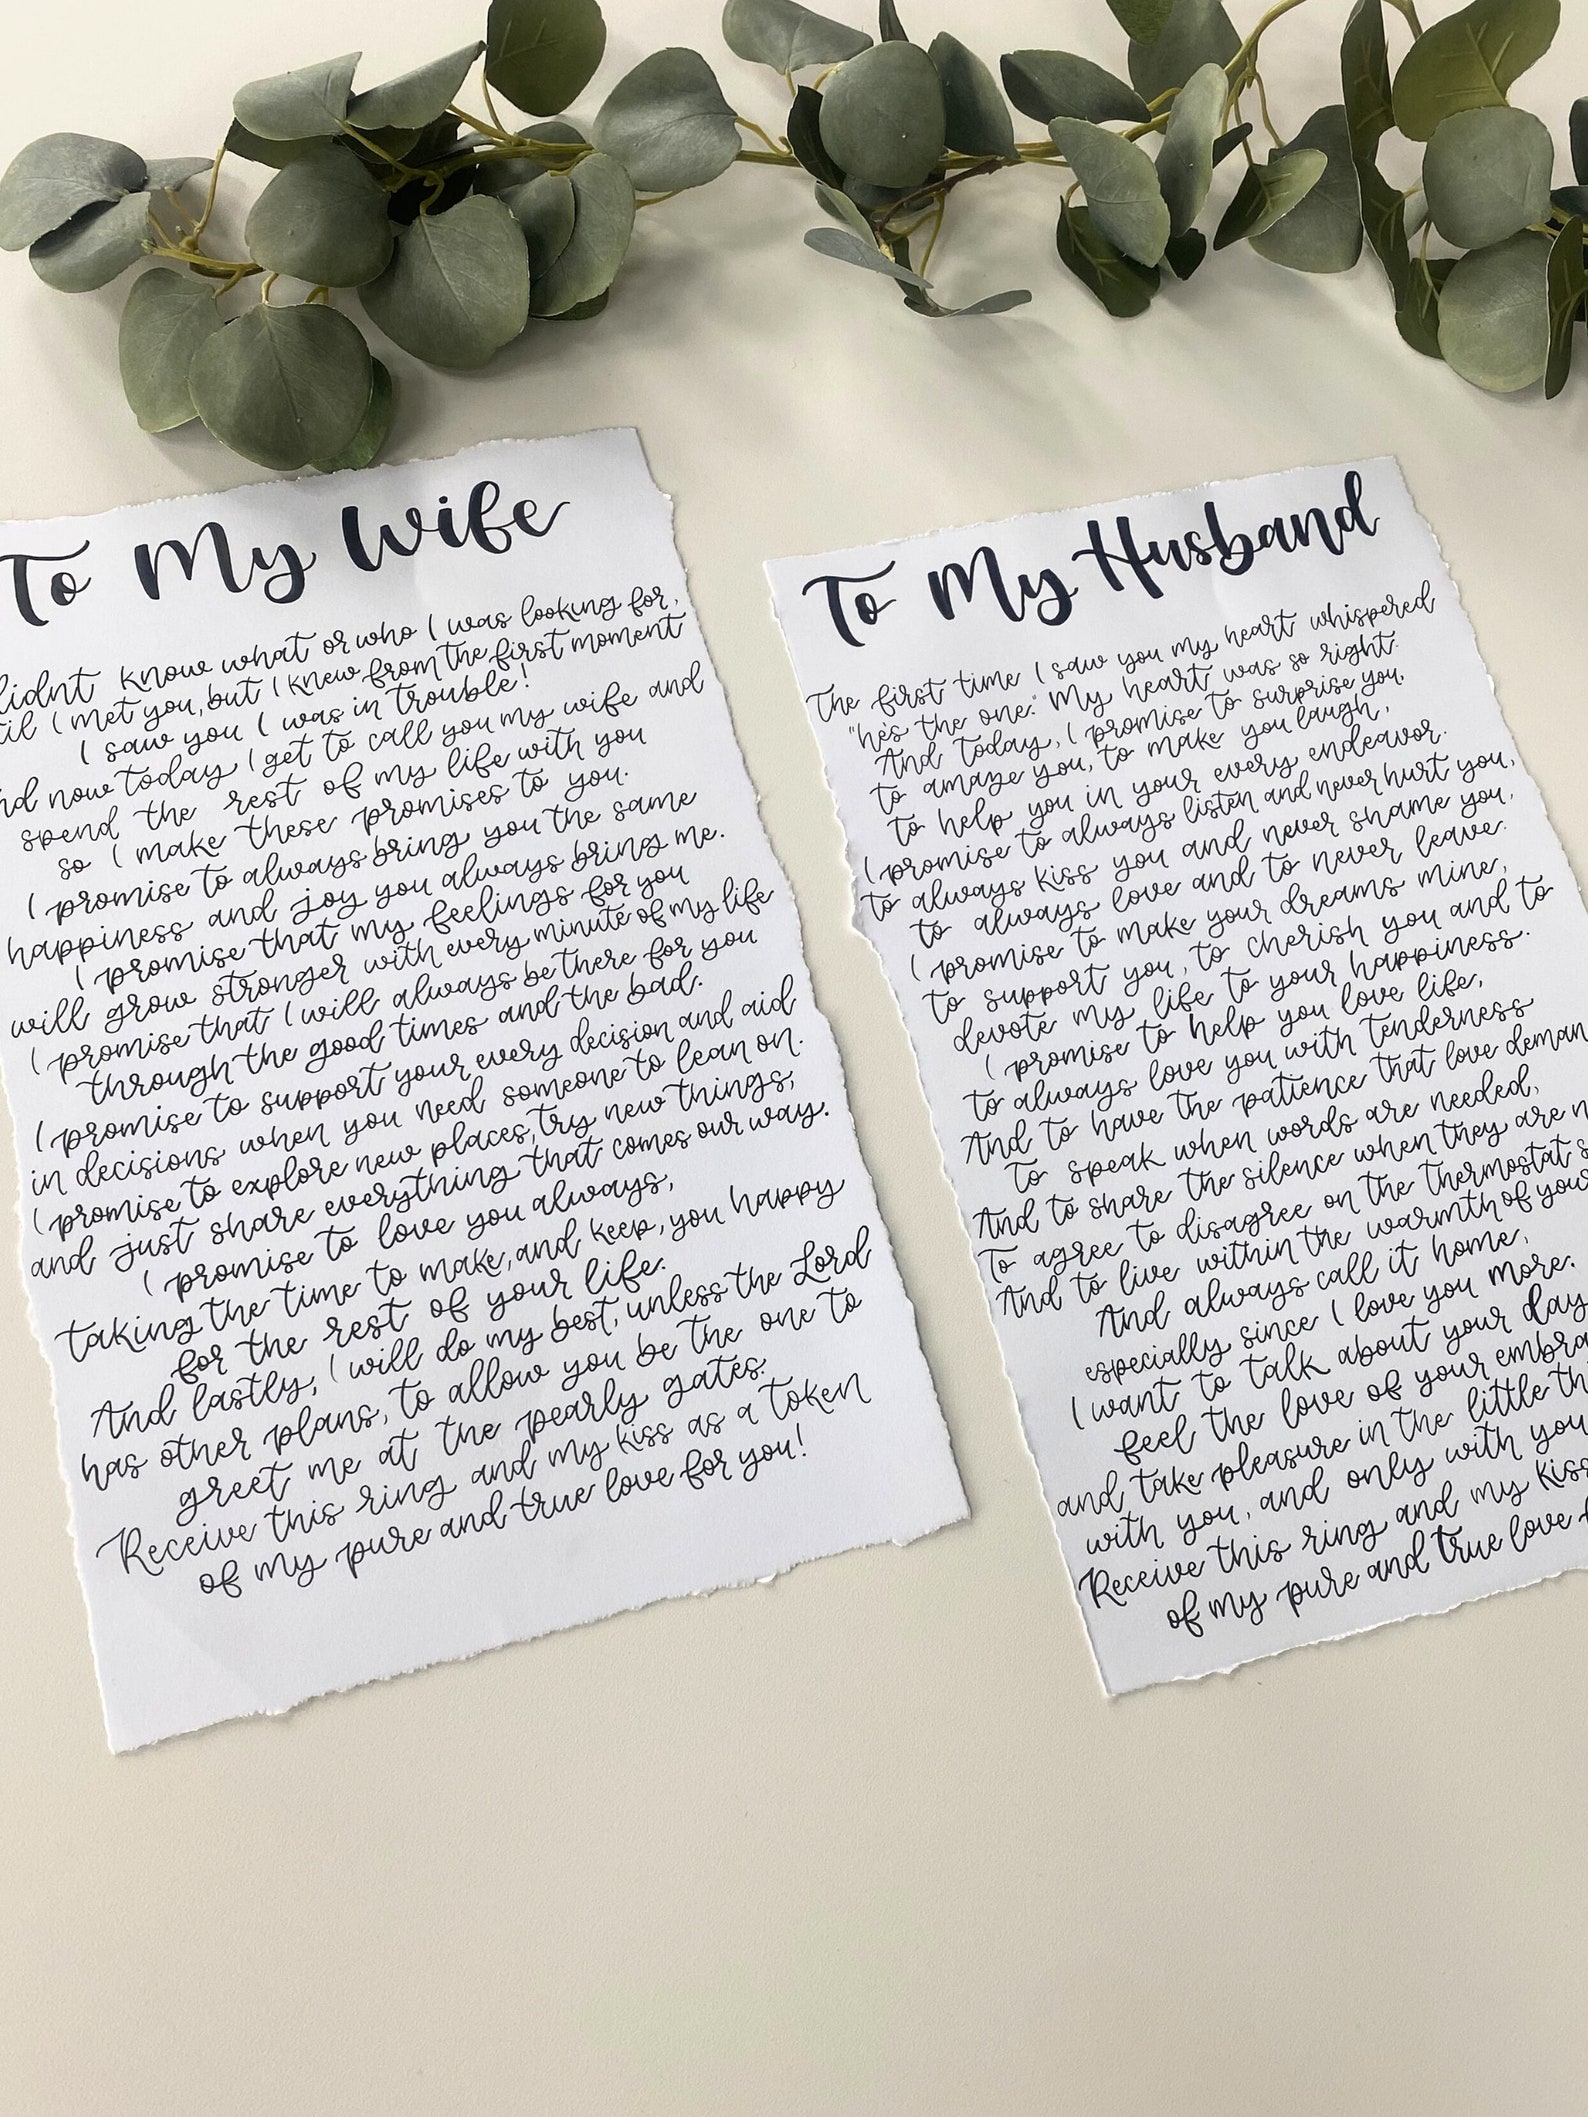 To My Wife
didnt know what or who I was looking for,
til I met you, but I knew from the first moment
I saw you I was in trouble!
nd now today I get to call you my wife and
spend the rest of my life with you
so I make these promises to you.
I promise to always bring you the same
happiness and joy you always bring me.
I promise that my feelings for you
will grow stronger with every minute of my life
I promise that I will always be there for you
through the good times and the bad.
I promise to support your every decision and aid
in decisions when you need someone to lean on.
I promise to explore new places, try new things,
and just share everything that comes our way.
I promise to love you always,
taking the time to make, and keep, you happy
for the rest of your life.
And lastly, I will do my best, unless the Lord
has other plans, to allow you be the one to
greet me at the pearly gates.
Receive this ring and my kiss as a token
of my pure and true love for you!
To My Husband
The first time I saw you my heart whispered
"hes the one." My heart was so right.
And today, I promise to surprise you,
to amaze you, to make you laugh,
to help you in your every endeavor.
I promise to always listen and never hurt you,
to always kiss you and never shame you,
to always love and to never leave.
I promise to make your dreams mine,
to support you, to cherish you and to
devote my life to your happiness.
I promise to help you love life,
to always love you with tenderness
And to have the patience that love deman
To speak when words are needed,
And to share the silence when they are n
To agree to disagree on the thermostat s
And to live within the warmth of your
And always call it home,
especially since I love you more.
I want to talk about your day
feel the love of your embra
and take pleasure in the little thi
with you, and only with you
Receive this ring and my kiss
of my pure and true love